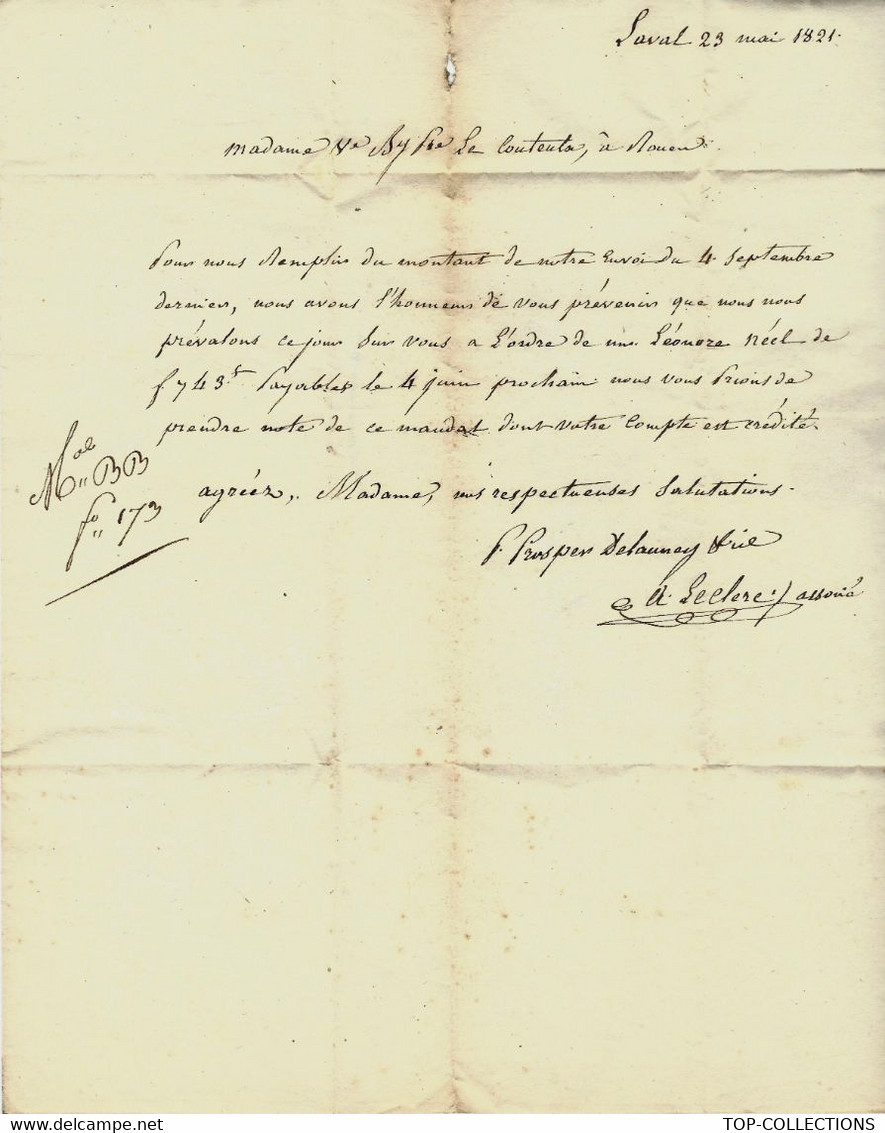 Laval 23 mai 1821.
Madame Ve By Pre Le Coutentx, à Rouen.
Pour nous Remplir du montant de notre Envoi du 4 Septembre
dernier, nous avons l'honneur de vous prévenir que nous nous
prévalons ce jour Sur vous a L'ordre de mr. Léonore Réel de
f 743. Payables le 4 juin prochain nous vous Prions de
prendre note de ce mandat dont votre Compte est crédité.
agréez, Madame, nos respectueuses Salutations.
Mal BB
fo 173
P. Prosper Delaunay
A. Leclerc associé
TOP-COLLECTIONS